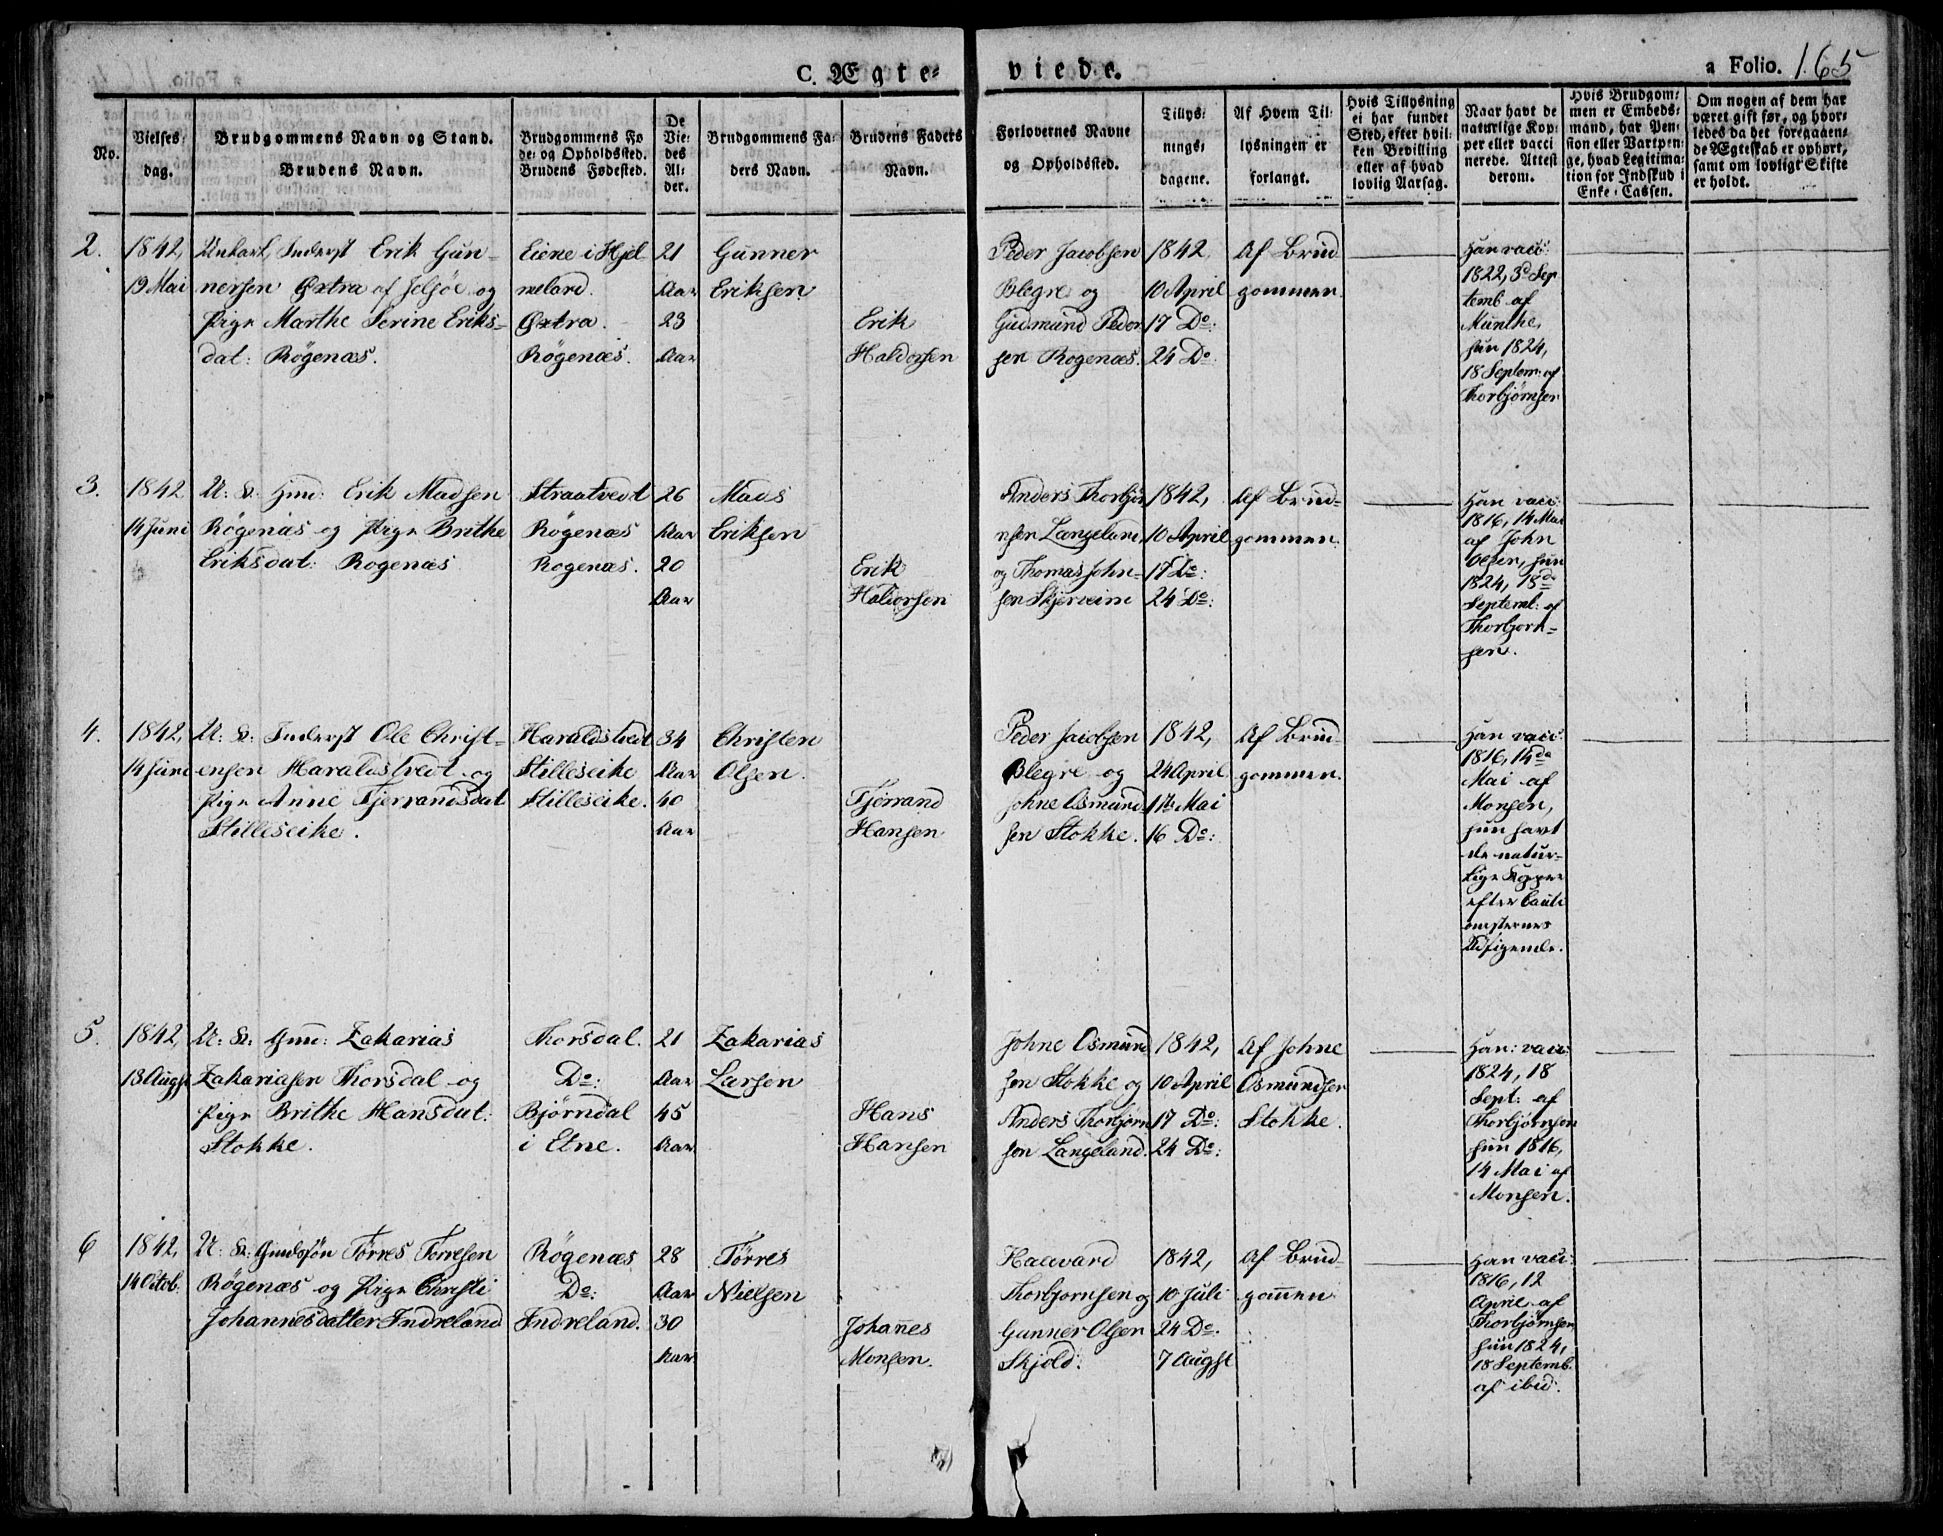 C. Ægte-
viede.
a Folio. 165
No.
Vielses-
dag.
Brudgommens Navn og Stand.
Brudens Navn.
Brudgommens Fø
de- og Opholdssted.
Brudens Fødested.
De
Vie-
des
Al-
der.
Brudgommens Fa-
ders Navn.
Brudens Faders
Navn.
Forlovernes Navne
og Opholdssted.
Tillys-
nings-
dagene.
Af Hvem Til-
lysningen er
forlangt.
Hvis Tillysning
ei har fundet
Sted, efter hvil-
ken Bevilling
eller af hvad
lovlig Aarsag.
Naar havt de
naturlige Kop-
per eller vacci
nerede. Attest
derom.
Hvis Brudgom-
men er Embeds-
mand, har Pen-
sion eller Vartpen-
ge, hvad Legitima-
tion for Indskud i
Enke-Cassen.
Om nogen af dem har
været gift før, og hvor-
ledes da det foregaaen-
de Ægteskab er ophørt,
samt om lovligt Skifte
er holdt.
2.
1842,
19 Mai
Unkarl, Inderst Erik Gun-
nersen Øxtra af Jelsøe og
Pige Marthe Serine Eriks-
dat: Røgenæs.
Eiene i Hjel
meland.
Øxtra.
Røgenæs.
21
Aar
23
Aar
Gunner
Eriksen
Erik
Haldorsen
Peder Jacobsen
Blegre og
Gudmund Peder
sen Rogenæs.
1842,
10 April
17 Do:
24 Do
Af Brud
gommen.
Han vacc:
1822, 3d Sep
temb af
Munthe,
hun 1824,
18 Septem: af
Thorbjørnsen
3.
1842
14 Juni
U: K: Gmd: Erik Madsen
Røgenæs og Pige Brithe
Eriksdat: Rogenæs.
Straatvedt
Røgenæs
Rogenæs.
26
Aar
20
Aar
Mads
Eriksen
Erik
Haldorsen
Anders Thorbjør
nsen Langeland,
og Thomas John-
sen Skjerveim
1842,
10 April
17 Do:
24 Do:
Af Brud-
gommen.
Han vacc:
1816, 14 Mai
af John
hun
1824, 18de
Septemb: af
Thorbjørn-
sen.
4.
1842,
14 Juni
U: K: Inderst Ole Christ-
ensen Haraldstvedt og
Pige Anne Tjerrandsdat
Stilleseike.
Haraldstvedt
Stilleseike
Stilleseike.
34
Aar
40
Aar
Christen
Olsen.
Tjerrand
Hansen
Peder Jacobsen
Blegre og
Johne Osmund
sen Stokke.
1842,
24 April
Mai
16 Do:
Af Brud-
gommen.
Han vacc:
1816, 14de
Mai af
Monsen,
hun havt
de natur-
lige Kopper
efter Cauti
onisternes
Udsigende.
5.
1842,
13 Augst
U: K: Gmd: Zakarias
Zakariasen Thorsdal og
Pige Brithe Hansdat:
Stokke.
Thorsdal.
Do:
Bjørndal
i Etne.
21
Aar
45
Aar
Zakarias
Larsen
Hans
Hansen
Johne Osmund
sen Stokke og
Anders Thorbjørn
sen Langeland.
1842,
10 April
17 Do:
24 Do:
Af Johne
Osmundsen
Stokke.
Han: vacc:
1824, 18
Sept: af
Thorbjørnsen
hun 1816,
14 Mai af
Monsen.
6
1842,
14 Octob.
U: K: Gmdssøn Tørres Torresen
Røgenæs og Pige Christi
Johannesdatter Indreland
Røgenæs
Do:
Indreland.
28
Aar
30
Aar
Tørres
Nielsen
Johannes
Monsen.
Haavard
Thorbjornsen og
Gunner Olsen
Skjold.
1842,
10 Juli
24 Do.
7 Augst
Af Brud-
gommen
Han vacc:
1816, 12
April af
Thorbjørnsen,
hun 1824,
18 Septemb.
af ibid.